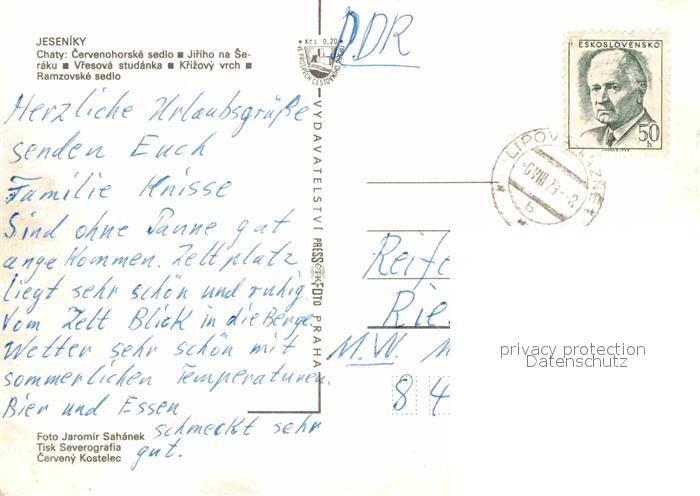 JESENÍKY
Chaty: Červenohorské sedlo ■ Jiřího na Še-
ráku ■ Vřesová studánka ■ Křížový vrch ■
Ramzovské sedlo
Herzliche Urlaubsgrüße
senden Euch
Familie Knisse
Sind ohne Panne gut
angekommen. Zeltplatz
liegt sehr schön und ruhig.
Vom Zelt Blick in die Berge.
Wetter sehr schön mit
sommerlichen Temperaturen.
Bier und Essen
schmeckt sehr
gut.
Foto Jaromír Sahánek
Tisk Severografia
Červený Kostelec
Kčs 0,20
VE PROSPĚCH CESTOVNÍHO RUCHU
VYDAVATELSTVÍ PRESSFOTO PRAHA
DDR
ČESKOSLOVENSKO
50
h
LIPOV LÁZNĚ
b
Reife
Rie
M.W.
84
privacy protection
Datenschutz